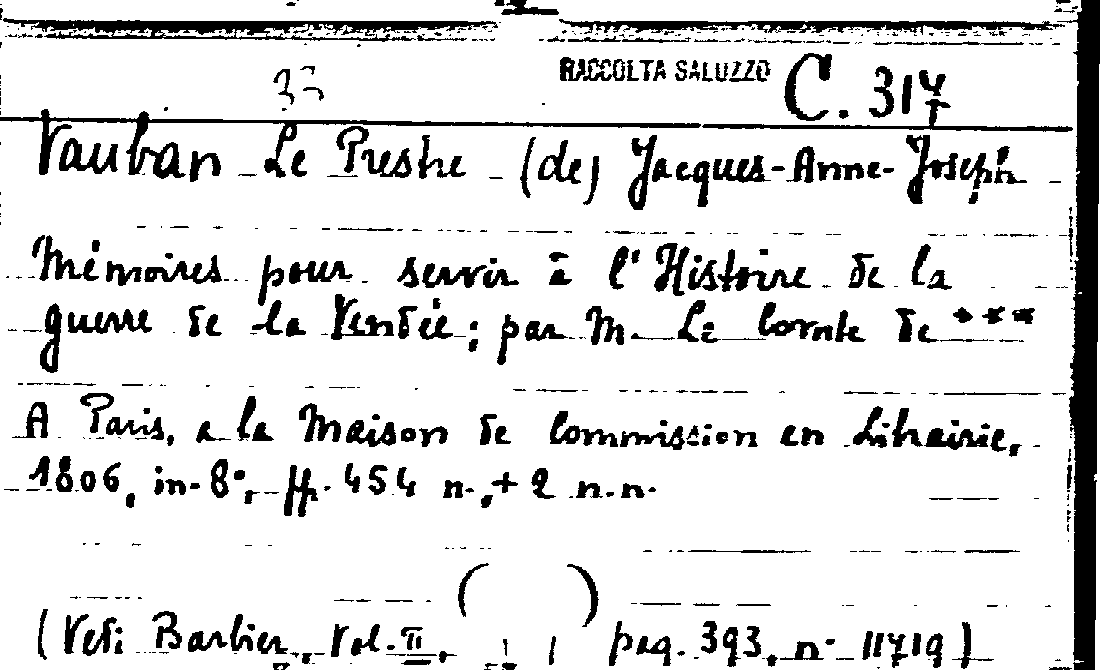 33 RACCOLTA SALUZZO C. 317
Vauban Le Prestre (de) Jacques-Anne-Joseph
Mémoires pour servir à l'Histoire de la
guerre de la Vendée; par M. Le Comte de ***
A Paris, a la Maison de Commission en Librairie,
1806, in-8°, pp. 454 n. + 2 n.n.
(Vedi Barbier, Vol. II, pag. 393, n° 11719)